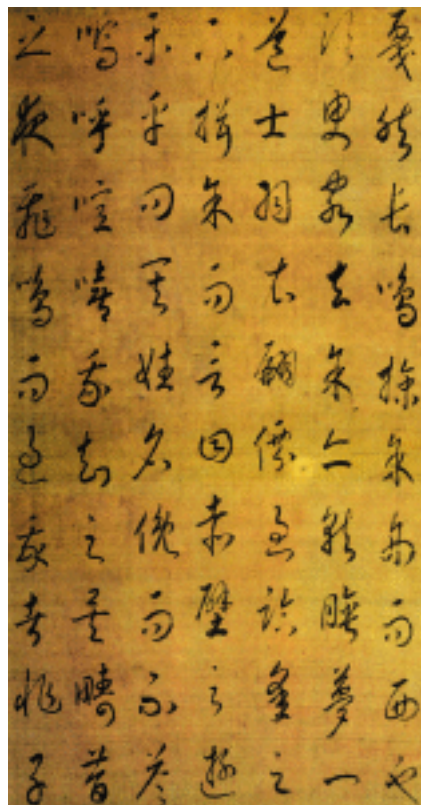 戛然長鳴掠予舟而西也
須臾客去予亦就睡夢一
道士羽衣翩僊過臨皋之
下揖予而言曰赤壁之遊
樂乎問其姓名俛而不答
嗚呼噫嘻我知之矣疇昔
之夜飛鳴而過我者非子